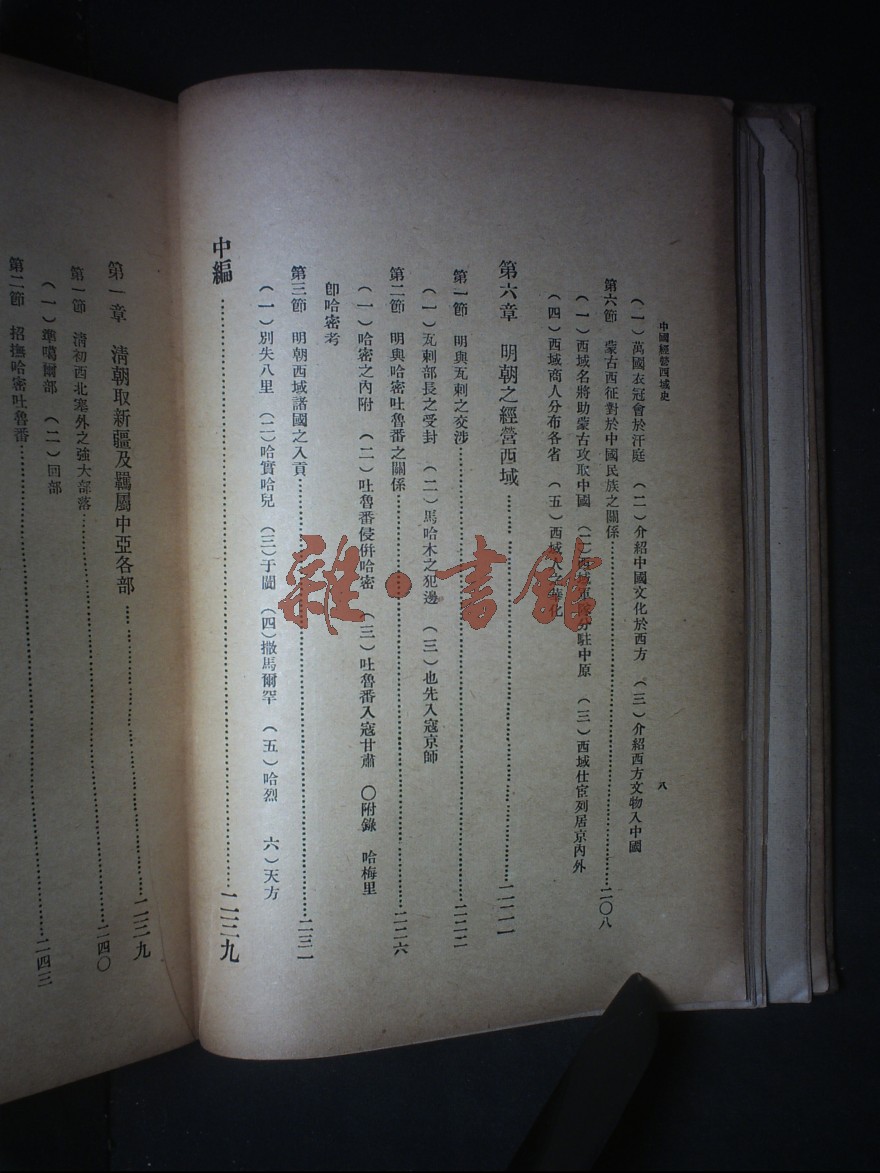 中國經營西域史
八
（一）萬國衣冠會於汗庭　（二）介紹中國文化於西方　（三）介紹西方文物入中國
第六節　蒙古西征對於中國民族之關係……二〇八
（一）西域名將助蒙古攻取中國　（二）西域軍隊分駐中原　（三）西域仕宦列居京內外
（四）西域商人分布各省　（五）西域人之華化
第六章　明朝之經營西域……二二一
第一節　明與瓦剌之交涉……二二二
（一）瓦剌部長之受封　（二）馬哈木之犯邊　（三）也先入寇京師
第二節　明與哈密吐魯番之關係……二二六
（一）哈密之內附　（二）吐魯番侵併哈密　（三）吐魯番入寇甘肅　〇附錄　哈梅里
卽哈密考
第三節　明朝西域諸國之入貢……二三一
（一）別失八里　（二）哈實哈兒　（三）于闐　（四）撒馬爾罕　（五）哈烈　六）天方
中編……二三九
第一章　清朝取新疆及羈屬中亞各部……二三九
第一節　清初西北塞外之強大部落……二四〇
（一）準噶爾部　（二）回部
第二節　招撫哈密吐魯番……二四三
雜·書館